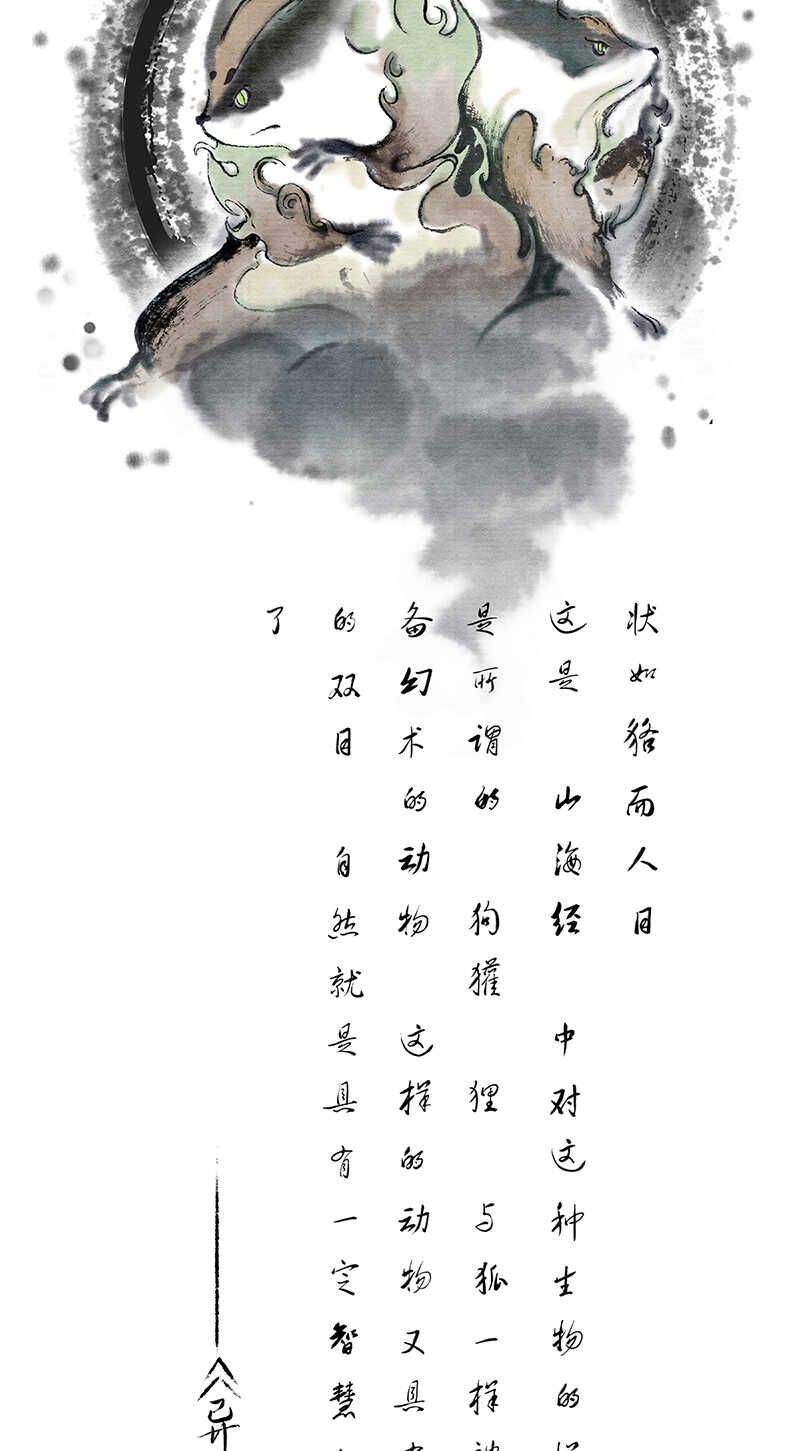 状如狢而人目
这是 山海经 中对这种生物的
是所谓的 狗獾 狸 与狐一样
备幻术的动物 这样的动物又具
的双目 自然就是具有一定智慧
了
《异